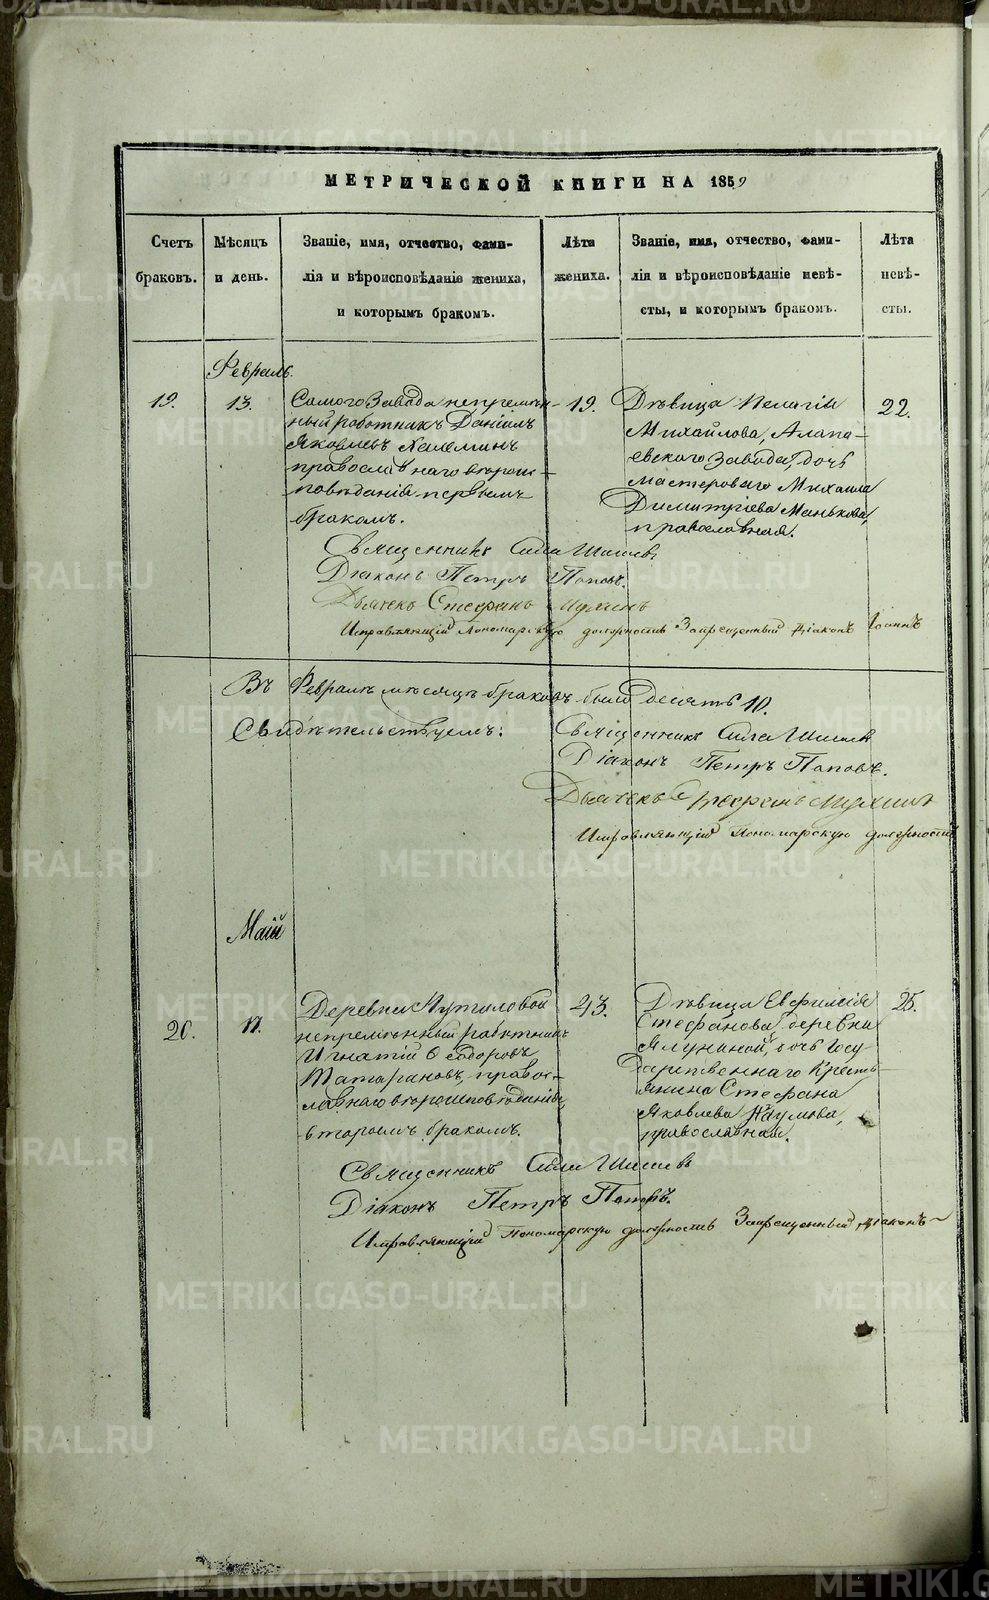 METRIKI.GASO-URAL.RU
МЕТРИЧЕСКОЙ КНИГИ НА 1859
Счетъ браковъ.
Мѣсяцъ и день.
Званіе, имя, отчество, фами-
лія и вѣроисповѣданіе жениха,
и которымъ бракомъ.
Лѣта жениха.
Званіе, имя, отчество, фами-
лія и вѣроисповѣданіе невѣ-
сты, и которымъ бракомъ.
Лѣта невѣ-
сты.
Февраль.
19.
13.
Самого Завода непремѣн-
ный работникъ Даніилъ
Яковлевъ
православнаго вѣроис-
повѣданія первымъ
бракомъ.
19.
Дѣвица Пелагія
Михайлова, Алапа-
евскаго Завода, дочь
мастероваго Михаила
Димитріева Манькова,
православная.
22.
Священникъ Сила Шишевъ
Діаконъ Петръ Поповъ.
Дьячекъ Стефанъ
Исправляющій Пономарскую должность Запрещенный Діаконъ Іоаннъ
Въ Февралѣ мѣсяцѣ браковъ было десять 10.
Свидѣтельствуемъ:
Священникъ Сила Шишевъ
Діаконъ Петръ Поповъ.
Дьячекъ Стефанъ
Исправляющій Пономарскую должность
Маій
20.
17.
Деревни Путиловой
непремѣнный работникъ
Игнатій Ѳеодоровъ
Татариновъ, правос-
лавнаго вѣроисповѣданія,
вторымъ бракомъ.
43.
Дѣвица Евфимія
Стефанова, деревни
Ялуниной, дочь Госу-
дарственнаго Кресть-
янина Стефана
Яковлева Наумова,
православная.
25.
Священникъ Сила Шишевъ
Діаконъ Петръ Поповъ.
Исправляющій Пономарскую должность Запрещенный Діаконъ